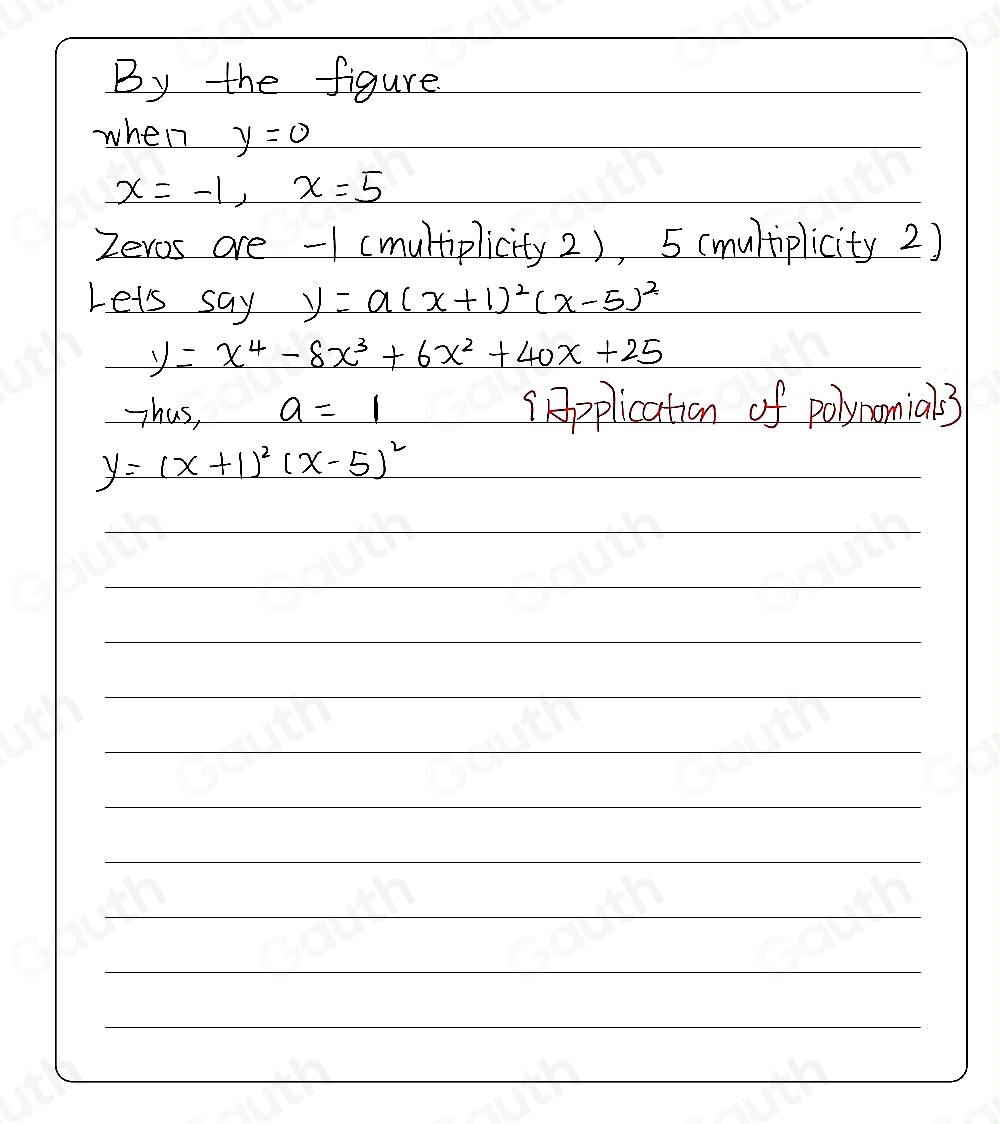 By the figure.
when y = 0
x = -1, x = 5
Zeros are -1 (multiplicity 2), 5 (multiplicity 2)
Let's say y = a(x+1)²(x-5)²
y = x⁴ - 8x³ + 6x² + 40x + 25
Thus, a = 1 {Application of polynomials}
y = (x+1)²(x-5)²
Gauth